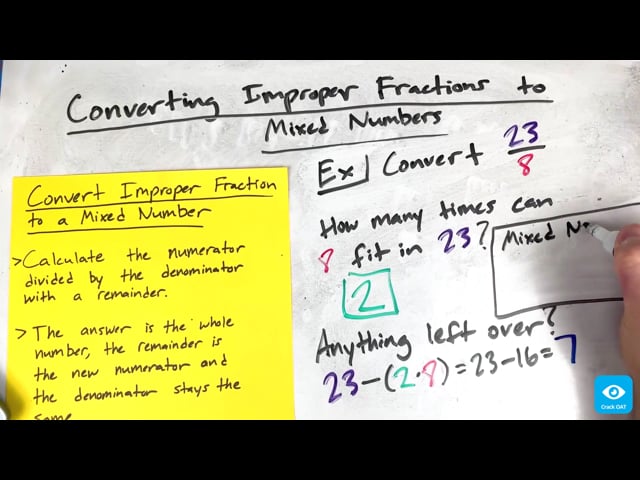 Converting Improper Fractions to
Mixed Numbers
Convert Improper Fraction
to a Mixed Number
>Calculate the numerator
divided by the denominator
with a remainder.
> The answer is the whole
number, the remainder is
the new numerator and
the denominator stays the
same
Ex Convert 23/8
How many times can
8 fit in 23?
2
Mixed
Anything left over?
23-(2·8)=23-16=7
Crack OAT